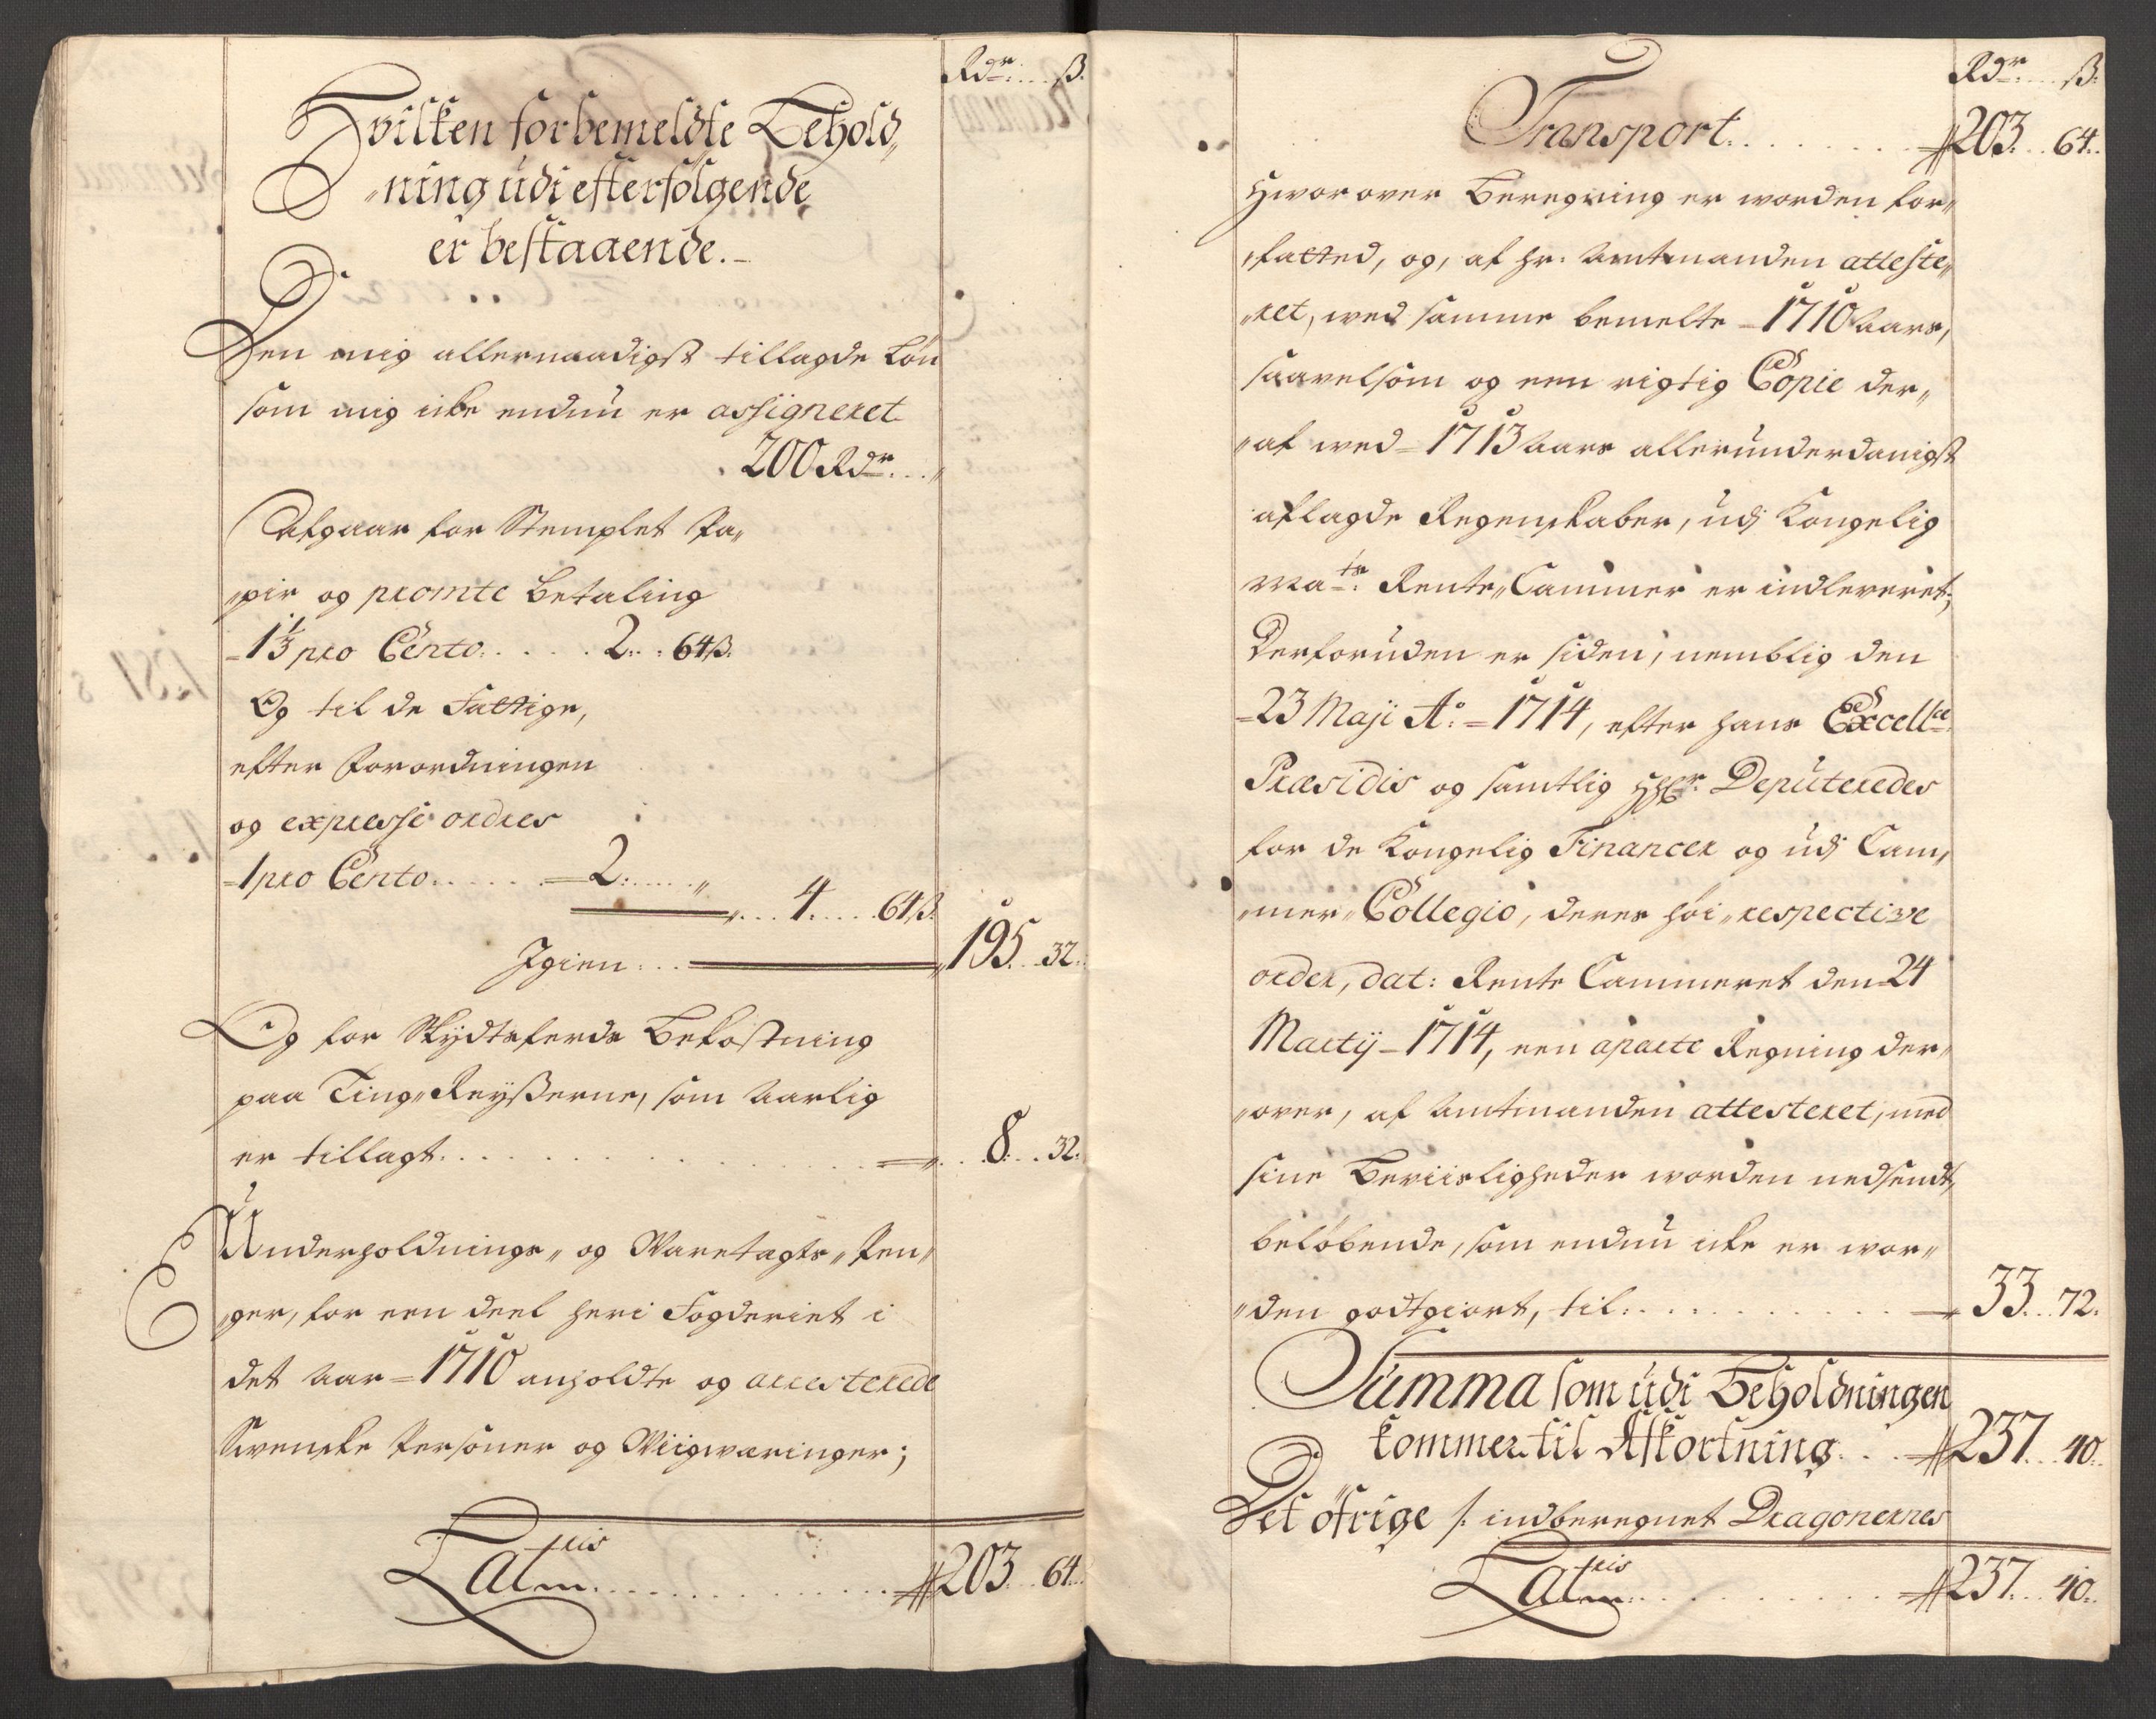 Rdr. ß.
Hvilken forbemeldte Behold„
„ning udi efterfølgende
er bestaaende.
Den mig allernaadigst tillagde Løn
som mig icke endnu er assigneret
200 Rdr.
Afgaar for Stemplet Pa„
„pir og promte betaling
1⅓ pro Cento. . . . . 2. 64 ß.
Og til de Fattige,
efter Forordningen
og expresse ordres
1 pro Cento. . . . . . 2. „
4. . . . 64 ß.
Igien. . . 195. 32.
Og for Skydtsferds Bekostning
paa Ting„Reyßerne, som Aarlig
er tillagt. . . . . . . . 8. 32.
Underholdnings„ og Varetægts„Pen„
„ger, for een deel heri Fogderiet i
det Aar 1710 anholdte og arresterede
Svenske Persohner og Viigværinger;
Lateris 203. 64.
Rdr. ß.
Transport. . . . . . . 203. 64.
Hvorover Beregning er worden for„
„fatted, og, af Hr. Amtmanden atteste„
„ret, ved samme bemelte 1710 Aars,
saavelsom og een rigtig Copie der„
„af ved 1713 Aars allerunderdanigst
aflagde Regenskaber, udj Kongelig
Mats. Rente„Cammer er indleveret;
Derforuden er siden, nemblig den
23 Maji Ao. 1714, efter Hans Excellce
Præsidis og samtlig HHr. Deputeredes
for de Kongelig Financer og udj Cam„
„mer„Collegio, deres høi„respective
order, dat: Rente Cammeret den 24
Martij 1714, een aparte Regning der„
„over, af Amtmanden attesteret, med
sine Beviisligheder worden nedsendt,
beløbende, som endnu icke er wor„
„den godtgiort, til. . . . . . . 33. 72.
Summa som udi Beholdningen
kommer til Afkortning. . . 237. 40.
Det øfrige /: indberegnet Dragonernes
Lateris 237. 40.